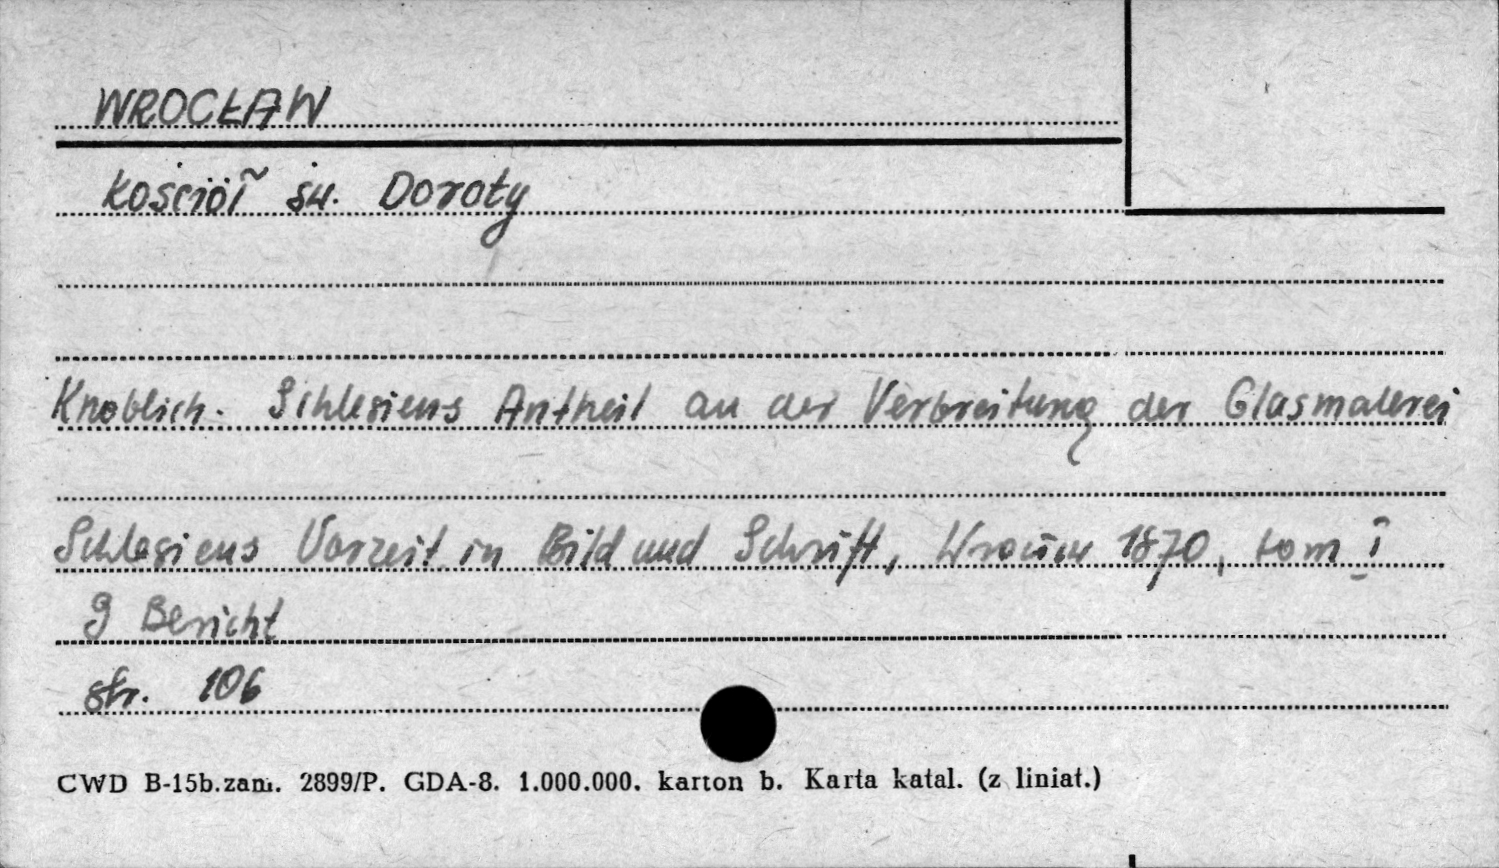 WROCŁAW
Kościół św. Doroty
Knoblich. Schlesiens Antheil an der Verbreitung der Glasmalerei
Schlesiens Vorzeit in Bild und Schrift, Wrocław 1870, tom I
9 Bericht
str. 106
CWD B-15b.zam. 2899/P. GDA-8. 1.000.000. karton b. Karta katal. (z liniat.)